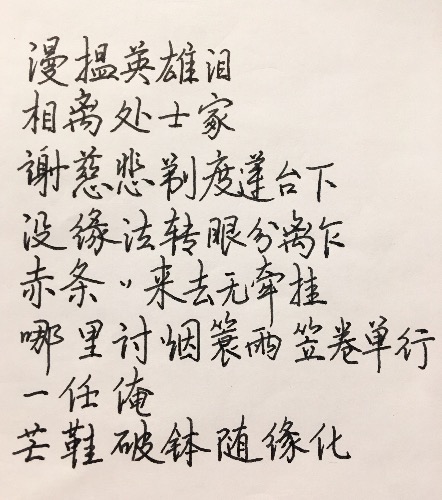 漫揾英雄泪
相离处士家
謝慈悲剃度莲台下
没缘法转眼分离乍
赤条〃来去无牵挂
哪里讨烟蓑雨笠卷单行
一任俺
芒鞋破钵随缘化